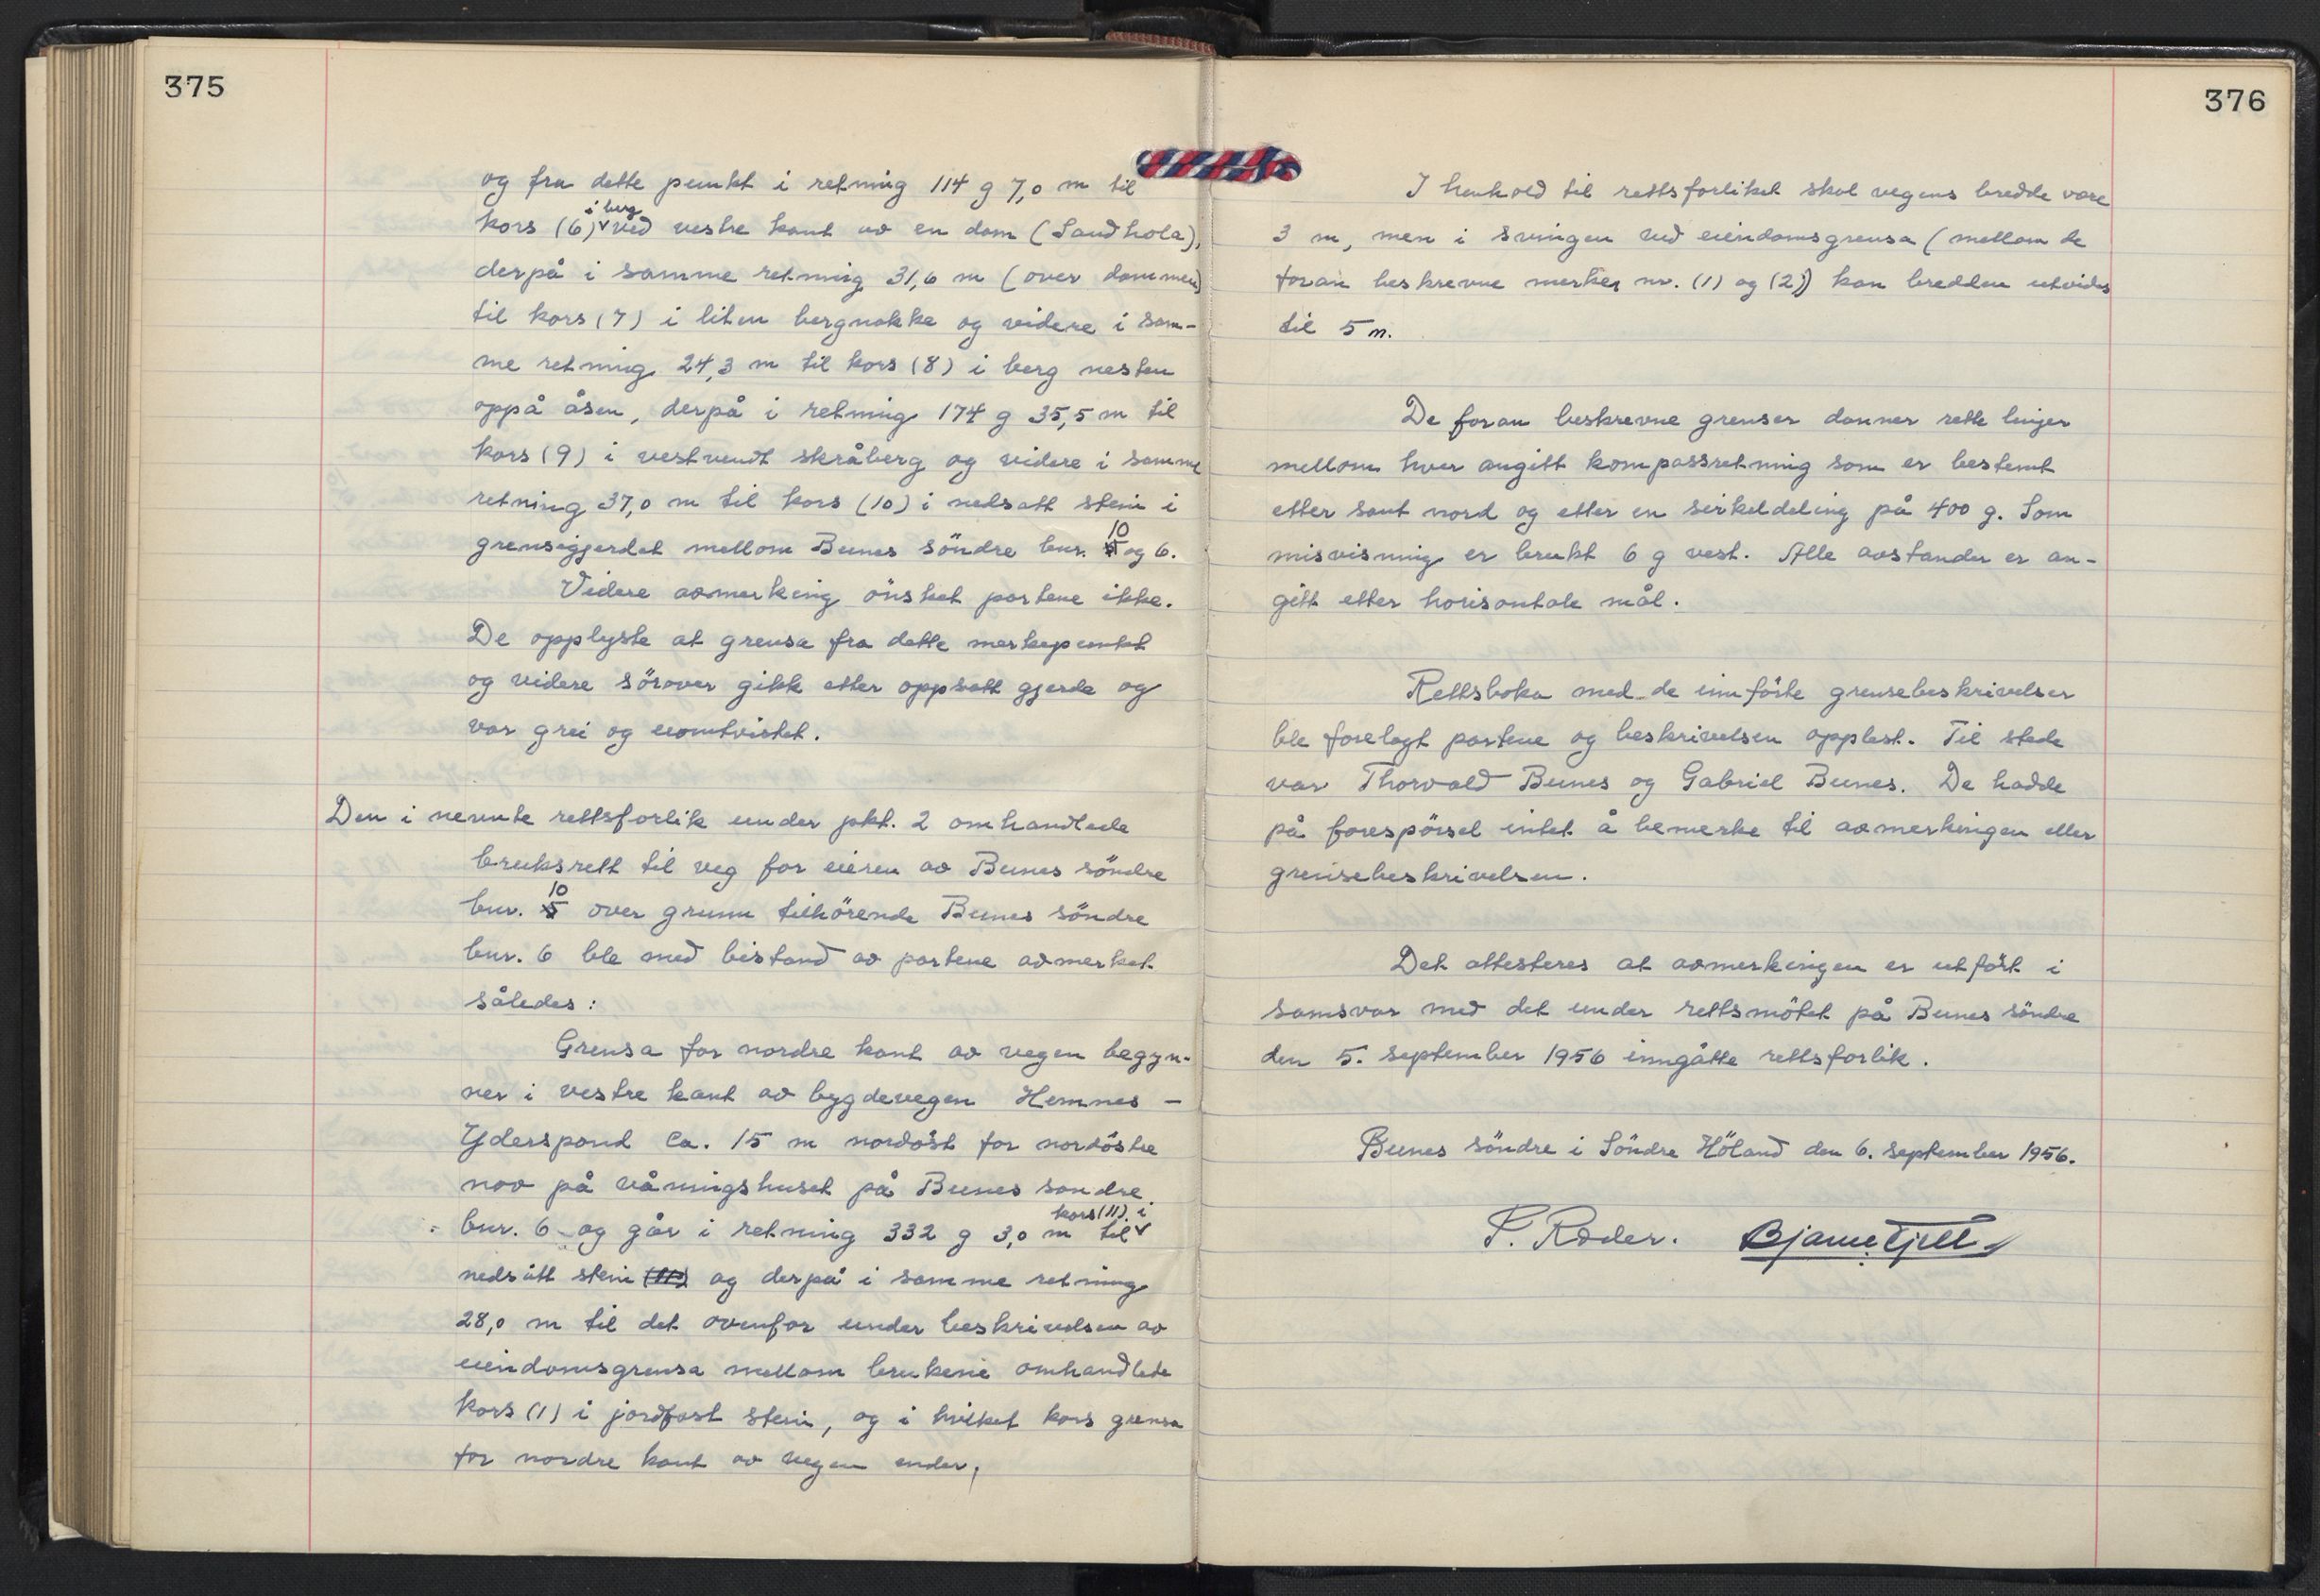 375
og fra dette punkt i retning 114 g 7,0 m til
i berg
kors (6) ved vestre kant av en dam (Sandhola),
derpå i samme retning 31,6 m (over dammen)
til kors (7) i liten bergnakke og videre i sam-
me retning 24,3 m til kors (8) i berg nesten
oppå åsen, derpå i retning 174 g 35,5 m til
kors (9) i vestvendt skråberg og videre i samme
retning 37,0 m til kors (10) i nedsatt stein i
10
grensegjerdet mellom Bunes söndre bnr. og 6.
Videre avmerking önsket partene ikke.
De opplyste at grensa fra dette merkepunkt
og videre sörover gikk etter oppsatt gjerde og
var grei og uomtvistet.
Den i nevnte rettsforlik under pkt. 2 omhandlede
bruksrett til veg for eieren av Bunes söndre
10
bnr. 5 over grunn tilhörende Bunes söndre
bnr. 6 ble med bistand av partene avmerket
således:
Grensa for nordre kant av vegen begyn-
ner i vestre kant av bygdevegen Hemnes -
Yderspond ca. 15 m nordöst for nordöstre
nov på våningshuset på Bunes söndre
kors (11) i
bnr. 6 og går i retning 332 g 3,0 m til
nedsatt stein (11) og derpå i samme retning
28,0 m til det ovenfor under beskrivelsen av
eiendomsgrensa mellom brukene omhandlede
kors (1) i jordfast stein, og i hvilket kors grensa
for nordre kant av vegen ender.
376
I henhold til rettsforliket skal vegens bredde være
3 m, men i svingen ved eiendomsgrensa (mellom de
foran beskrevne merker nr. (1) og (2)) kan bredden utvides
til 5 m.
De foran beskrevne grenser danner rette linjer
mellom hver angitt kompassretning som er bestemt
etter sant nord og etter en sirkeldeling på 400 g. Som
misvisning er brukt 6 g vest. Alle avstander er an-
gitt etter horisontale mål.
Rettsboka med de innförte grensebeskrivelser
ble forelagt partene og beskrivelsen opplest. Til stede
var Thorvald Bunes og Gabriel Bunes. De hadde
på forespörsel intet å bemerke til avmerkingen eller
grensebeskrivelsen.
Det attesteres at avmerkingen er utfört i
samsvar med det under rettsmötet på Bunes söndre
den 5. september 1956 inngåtte rettsforlik.
Bunes söndre i Söndre Höland den 6. september 1956.
P. Røder. Bjarne Fjell